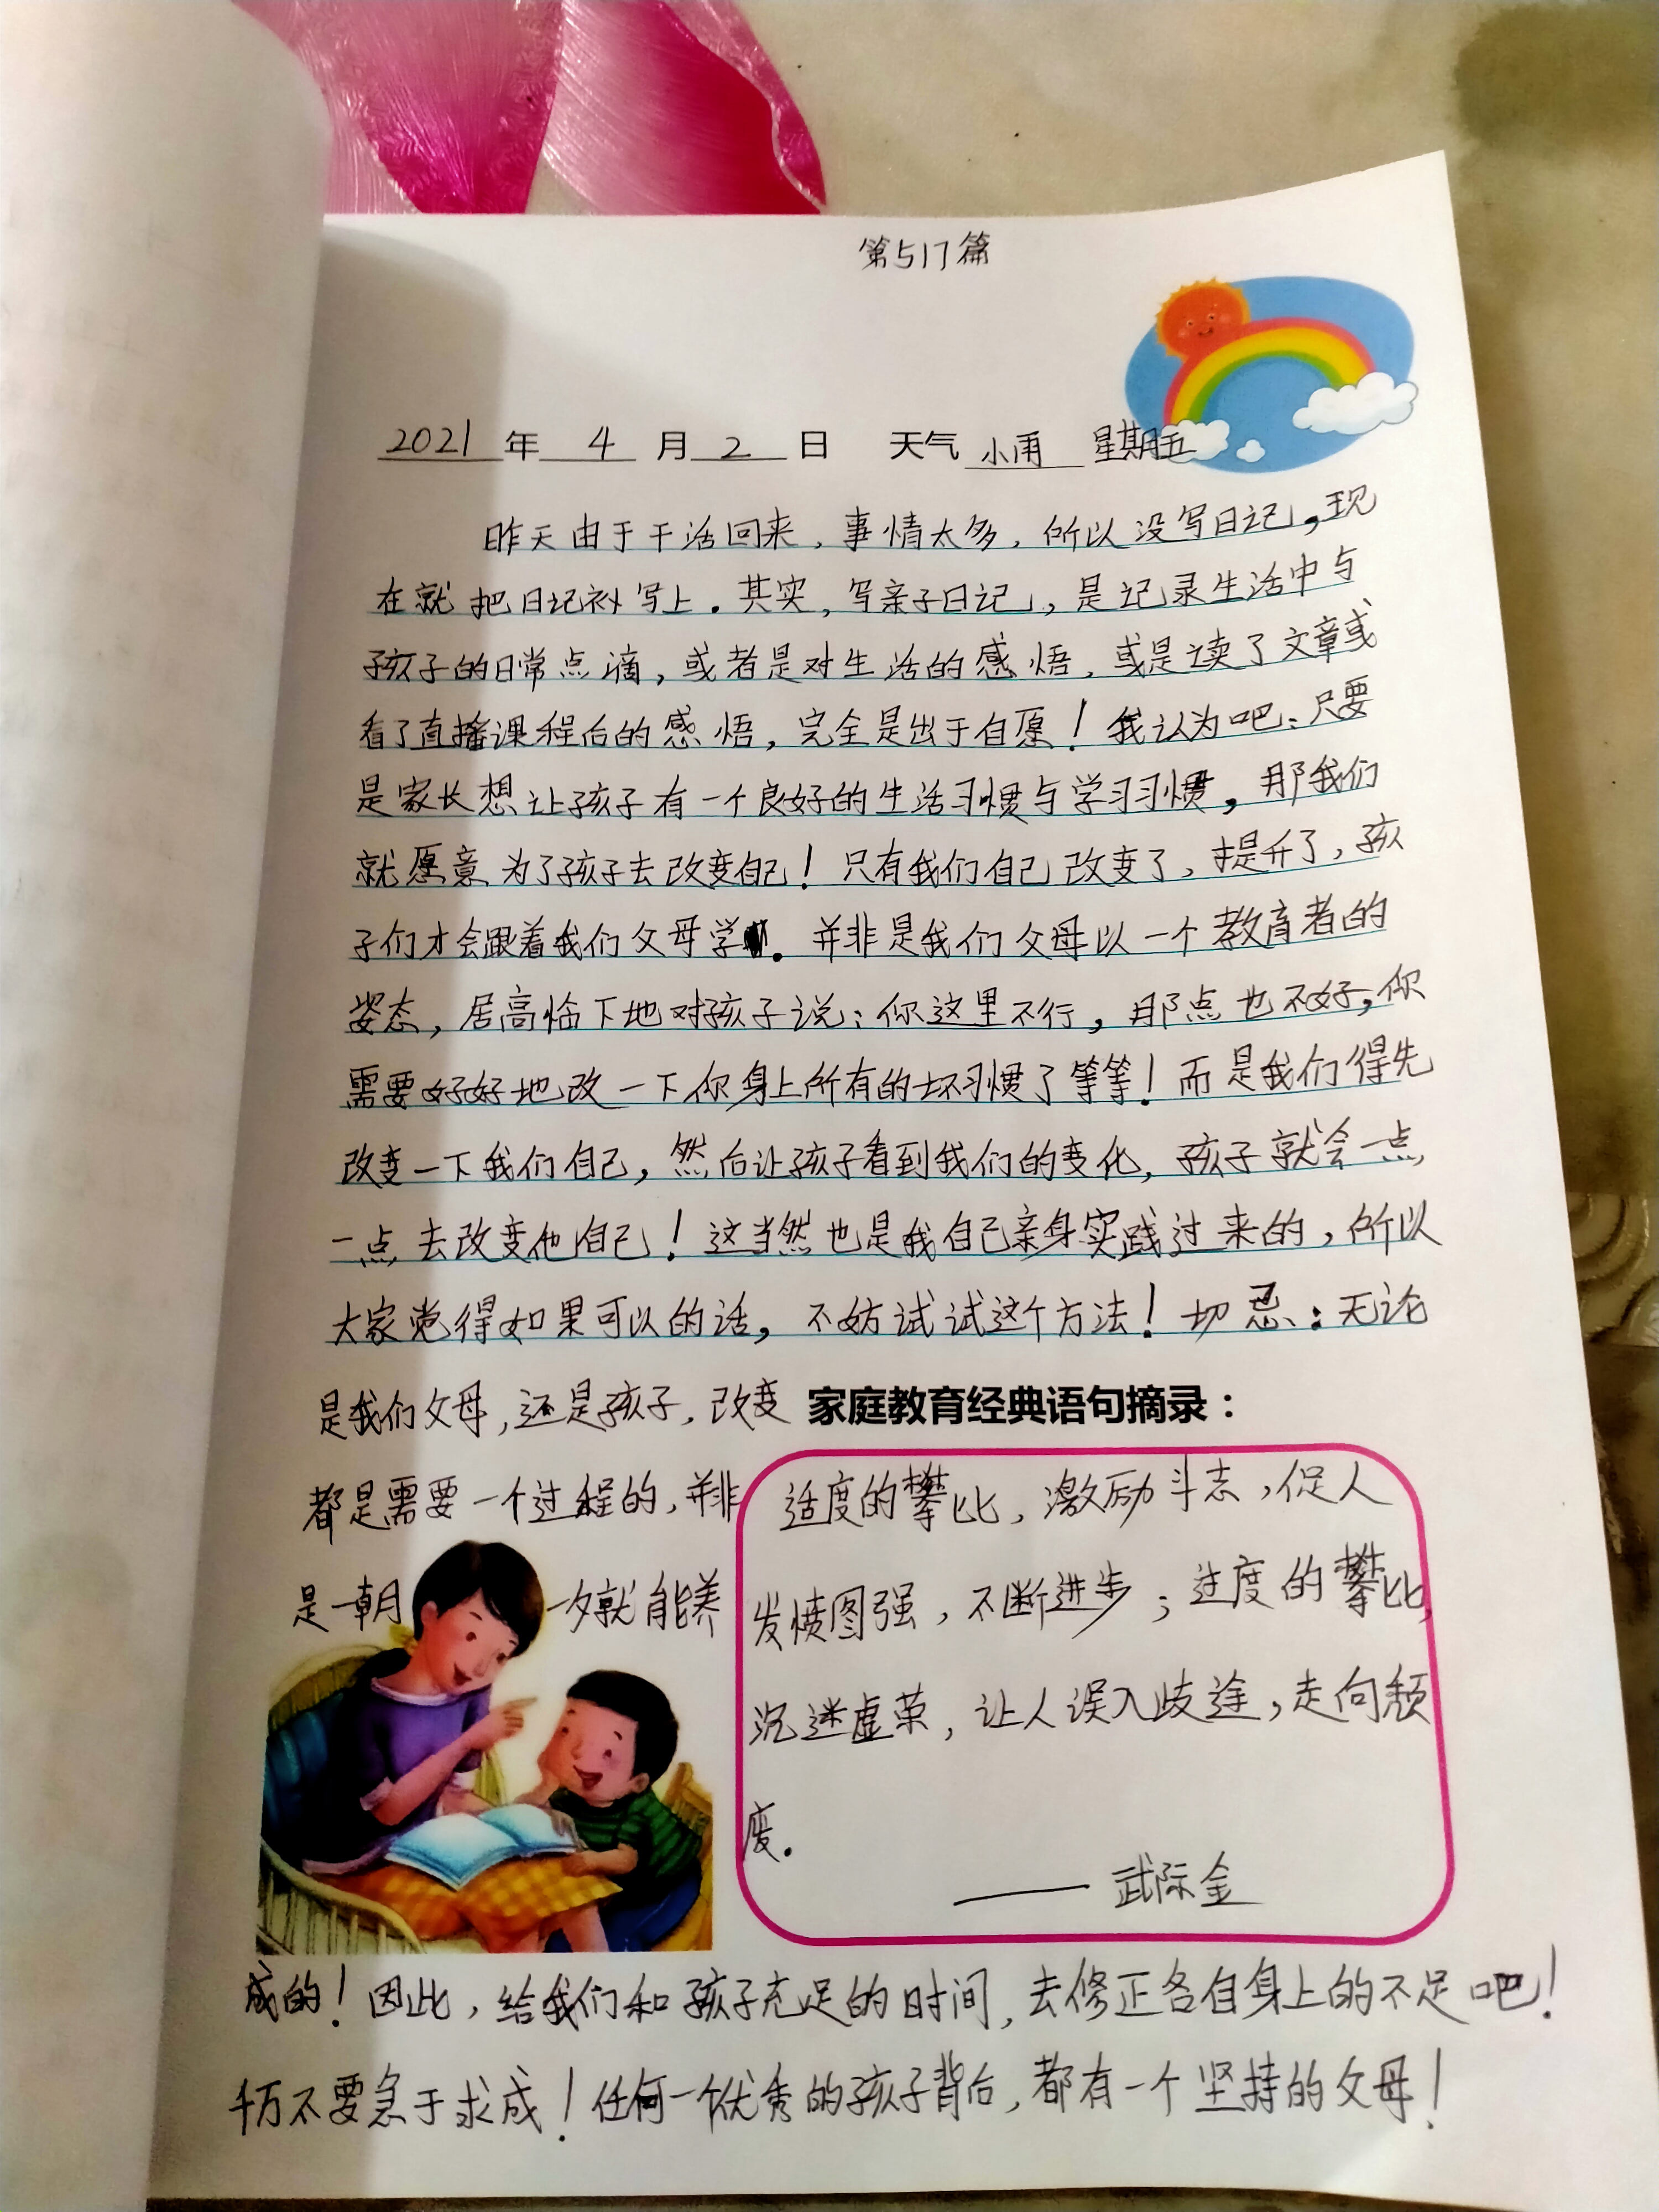 第517篇
2021年 4月2日 天气 小雨 星期五
昨天由于干活回来，事情太多，所以没写日记，现
在就把日记补写上。其实，写亲子日记，是记录生活中与
孩子的日常点滴，或者是对生活的感悟，或是读了文章或
看了直播课程后的感悟，完全是出于自愿！我认为吧：只要
是家长想让孩子有一个良好的生活习惯与学习习惯，那我们
就愿意为了孩子去改变自己！只有我们自己改变了，提升了，孩
子们才会跟着我们父母学。并非是我们父母以一个教育者的
姿态，居高临下地对孩子说：你这里不行，那点也不好，你
需要好好地改一下你身上所有的坏习惯了等等！而是我们得先
改变一下我们自己，然后让孩子看到我们的变化，孩子就会一点
一点去改变他自己！这当然也是我自己亲身实践过来的，所以
大家觉得如果可以的话，不妨试试这个方法！切忌：无论
是我们父母，还是孩子，改变
都是需要一个过程的，并非
是一朝一夕就能养
家庭教育经典语句摘录：
适度的攀比，激励斗志，促人
发愤图强，不断进步；过度的攀比，
沉迷虚荣，让人误入歧途，走向颓
废。
——武际金
成的！因此，给我们和孩子充足的时间，去修正各自身上的不足吧！
千万不要急于求成！任何一个优秀的孩子背后，都有一个坚持的父母！